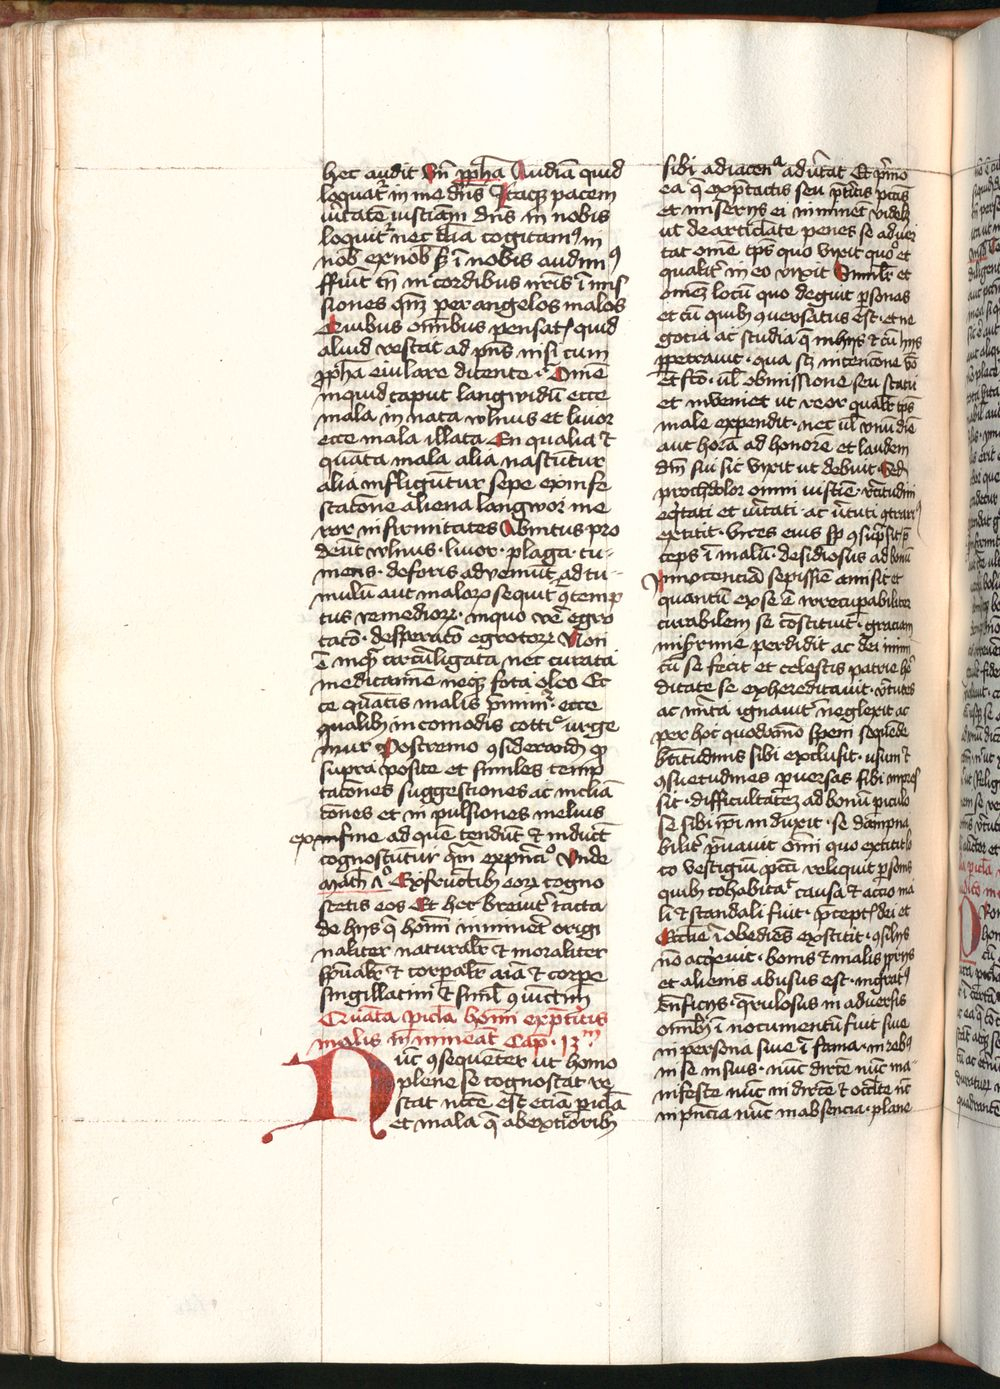 hec audit Vn̄ ꝓph̄a Audiā quid
loquat᷑ in me dn̄s Itaqꝫ pacem
v̄itatē iusticiam dn̄s in nobis
loquit᷑ nec talia cogitam⁹ in
nob ex nob sꝫ ī nobis audim⁹
ffiūt tn̄ in cordibus nr̄is īmis
siones qn̄ꝫ per angelos malos
Quibus omībus pensatꝭ quid
aliud restat ad pn̄s nisi cum
ꝓph̄a eiulare dicente · Om̄e
inquid caput langwidū ecce
mala in nata vlnus et liuor
ecce mala illata En qualia ⁊
quāta mala alia nascūtur
alia infligūtur sepe ex infe
stacōne aliena langwor me
ror infirmitates Abintus pro
deūt vlnus · liuor · plaga · tu-
mens · deforis adveniūt ad tu-
multū aut maloꝝ sequit᷑ ꝯtemp
tus remedioꝝ · in quo vē egro
tacō · desperacō egrotoꝝ Non
ē inqͣ circūligata nec curata
medicamīe neqꝫ fota oleo Ec
ce quātis malis p̄mim᷑ · ecce
qualibꝫ incomodis cottͥᵉ vrge
mur Postremo ꝯsiderandū ꝙ
supra posite et similes temp
taciōes suggestiones ac inclia
tōnes et in pulsiones melius
ex in fine ad quē tendūt ⁊ inducūt
cognoscūtur qͣm ex pͥncͥᵒ Vnde
math 7ͦ Ex fructibꝫ eoꝝ cogno
scetis eos Et hec breuit᷑ tacta
de hijs q̄ homī īminēt origi
naliter naturalr̄ ⁊ moraliter
spūalr̄ ⁊ corpalr̄ aīa ⁊ corpe
singillatim ⁊ simͥl ꝯiūctim
Quāta pic̄la homī ex pͥtͥtis
malis īmineāt Cap · 13ᵐ
Nūc ꝯsequenter ut homo
plene se cognoscat re
stat uidē est eciā pic̄la
et mala q̄ ab extͥoribꝫ
sibi adiacenͣ adūtat Et pͥmo
ea q̄ ex pͥtactis seu pͥtitis pc̄tis
et miserijs ei īminēt videlꝫ
ut de articlāte penes se aduer
tat om̄e tp̄s quo vixit quo et
qualit᷑ in eo vixit Similr̄ et
omēꝫ locū quo deguit psonas
et cū quibꝫ ꝯuersatus est · et ne
gocia ac studia q̄ in hijs ⁊ cū hijs
ꝑpetrauit · qua scꝫ intencōne v̄bo
et fcō · ul̄ obmissione seu statu
et inveniet ut reor qualr̄ tp̄s
male expendit · nec ul̄ vnū diē
aut horā ad honorē et laudem
dn̄i sui sic vixit ut debuit Sed
prochdolor omni iusticie · rc̄titudini
eq̄tati et v̄itati · ac v̄tuti ꝯtrari⁹
extitit · vires eius sp̄ ꝯsūpsit p̄
ceps ī malū · desidiosus ad bonū
Innocenciā sepissīe amisit et
quantū ex se ē irrecupabiliter
curabilem se cōstituit · graciam
infirmē perdidit ac dei inimi
cū se fecit et celestis patrie he
ditate se exhereditauit · v̄tutes
ac mīta ignauit᷑ neglexit ac
per hoc quodāmō spem seqūede
btītudinis sibi exclusit · usum ⁊
ꝯsuetudines peruersas sibi impres
sit · difficultatēꝫ ad bonū piculo
se sibi ip̄i induxit · se dāmpna
bilit᷑ p̄uauit omī quo extitit lo
co vestigiū pcc̄i reliquit psonis
quibꝫ cohabitat᷑ causa ⁊ accio ma
li ⁊ scandali fuit · p̄ceptꝭ dei et
Ecclīe īobediēs exstitit · ꝯsilijs
nō acq̄euit · bonis ⁊ malis pprijs
et alienis abusus est · ingrat⁹
bn̄ficijs · q̄rulosus in aduersis
omībꝫ ī nocumentū fuit siue
in persona siue ī fama · in reb⁹
in se in suis · nūc dirēte nūc ma-
nifeste nūc indirēte ⁊ occlte nūc
in pn̄cia nūc in absencia · plane